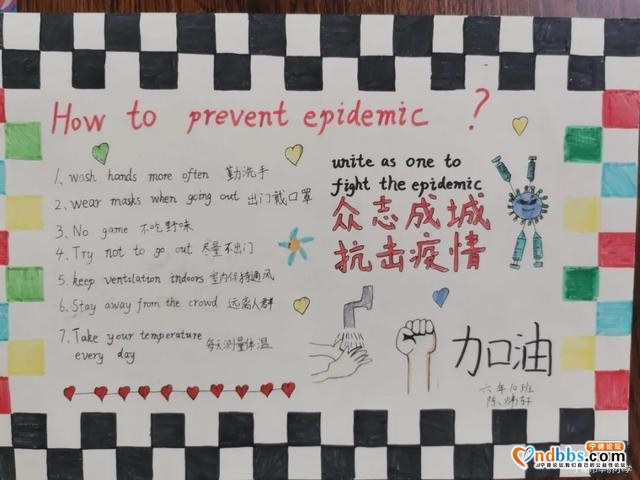 How to prevent epidemic ?
1、wash hands more often 勤洗手
2、wear masks when going out 出门戴口罩
3、No game 不吃野味
4、Try not to go out 尽量不出门
5、keep ventilation indoors 室内保持通风
6、Stay away from the crowd 远离人群
7、Take your temperature
every day 每天测量体温
unite as one to
fight the epidemic
众志成城
抗击疫情
加油
六年10班
宁德论坛
ndbbs.com